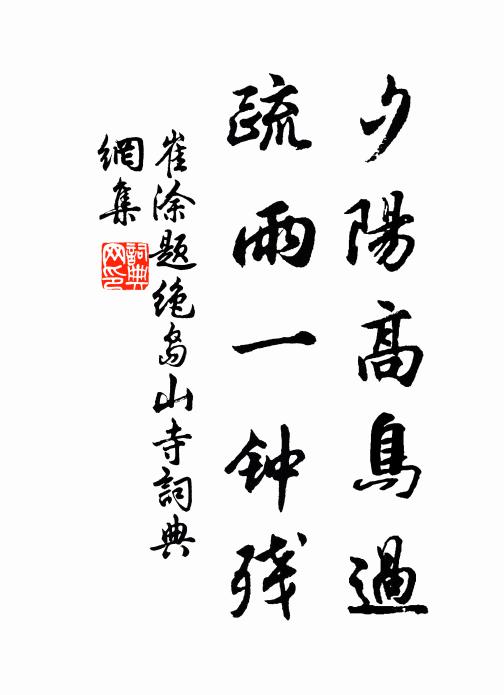 夕陽高鳥過
疏雨一钟残
崔涂題絶岛山寺詞典
網集
詞典
网印